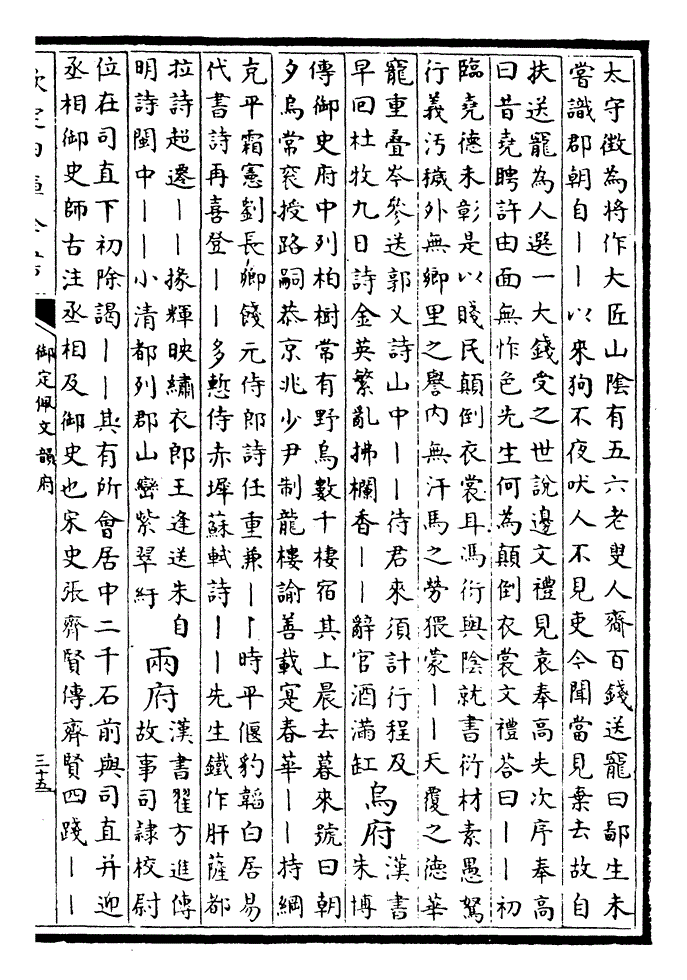 太守徵為將作大匠山陰有五六老叟人齎百錢送寵曰鄙生未
嘗識郡朝自——以來狗不夜吠人不見吏今聞當見棄去故自
扶送寵為人選一大錢受之世說邊文禮見袁奉高失次序奉高
曰昔堯聘許由面無怍色先生何為顛倒衣裳文禮答曰——初
臨堯德未彰是以賤民顛倒衣裳耳馮衍與陰就書衍材素愚駑
行義汚穢外無鄉里之譽内無汗馬之勞猥蒙——天覆之德華
寵重疊岑參送郭乂詩山中——待君來須計行程及
早回杜牧九日詩金英繁亂拂欄香——辭官酒滿缸
烏府
漢書
朱博
傳御史府中列柏樹常有野烏數千棲宿其上晨去暮來號曰朝
夕烏常袞授路嗣恭京兆少尹制龍樓諭善載寔春華——持綱
克平霜憲劉長卿餞元侍郎詩任重兼——時平偃豹韜白居易
代書詩再喜登——多慙侍赤墀蘇軾詩——先生鐵作肝薩都
拉詩超遷——掾輝映繡衣郎王逢送朱自
明詩閩中——小清都列郡山巒紫翠紆
兩府
漢書翟方進傳
故事司隸校尉
位在司直下初除謁——其有所會居中二千石前與司直并迎
丞相御史師古注丞相及御史也宋史張齊賢傳齊賢四踐——
欽定四庫全書
御定佩文韻府
三十五